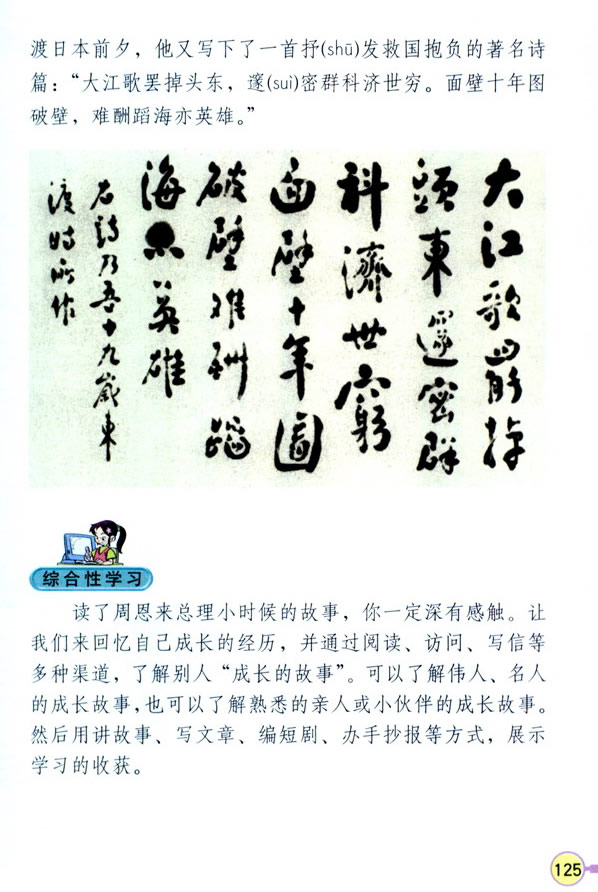 渡日本前夕，他又写下了一首抒(shū)发救国抱负的著名诗
篇：“大江歌罢掉头东，邃(suì)密群科济世穷。面壁十年图
破壁，难酬蹈海亦英雄。”
大江歌罷掉
頭東邃密群
科濟世窮
面壁十年圖
破壁難酬蹈
海亦英雄
右詩乃吾十九歲東
渡時所作
综合性学习
读了周恩来总理小时候的故事，你一定深有感触。让
我们来回忆自己成长的经历，并通过阅读、访问、写信等
多种渠道，了解别人“成长的故事”。可以了解伟人、名人
的成长故事，也可以了解熟悉的亲人或小伙伴的成长故事。
然后用讲故事、写文章、编短剧、办手抄报等方式，展示
学习的收获。
125